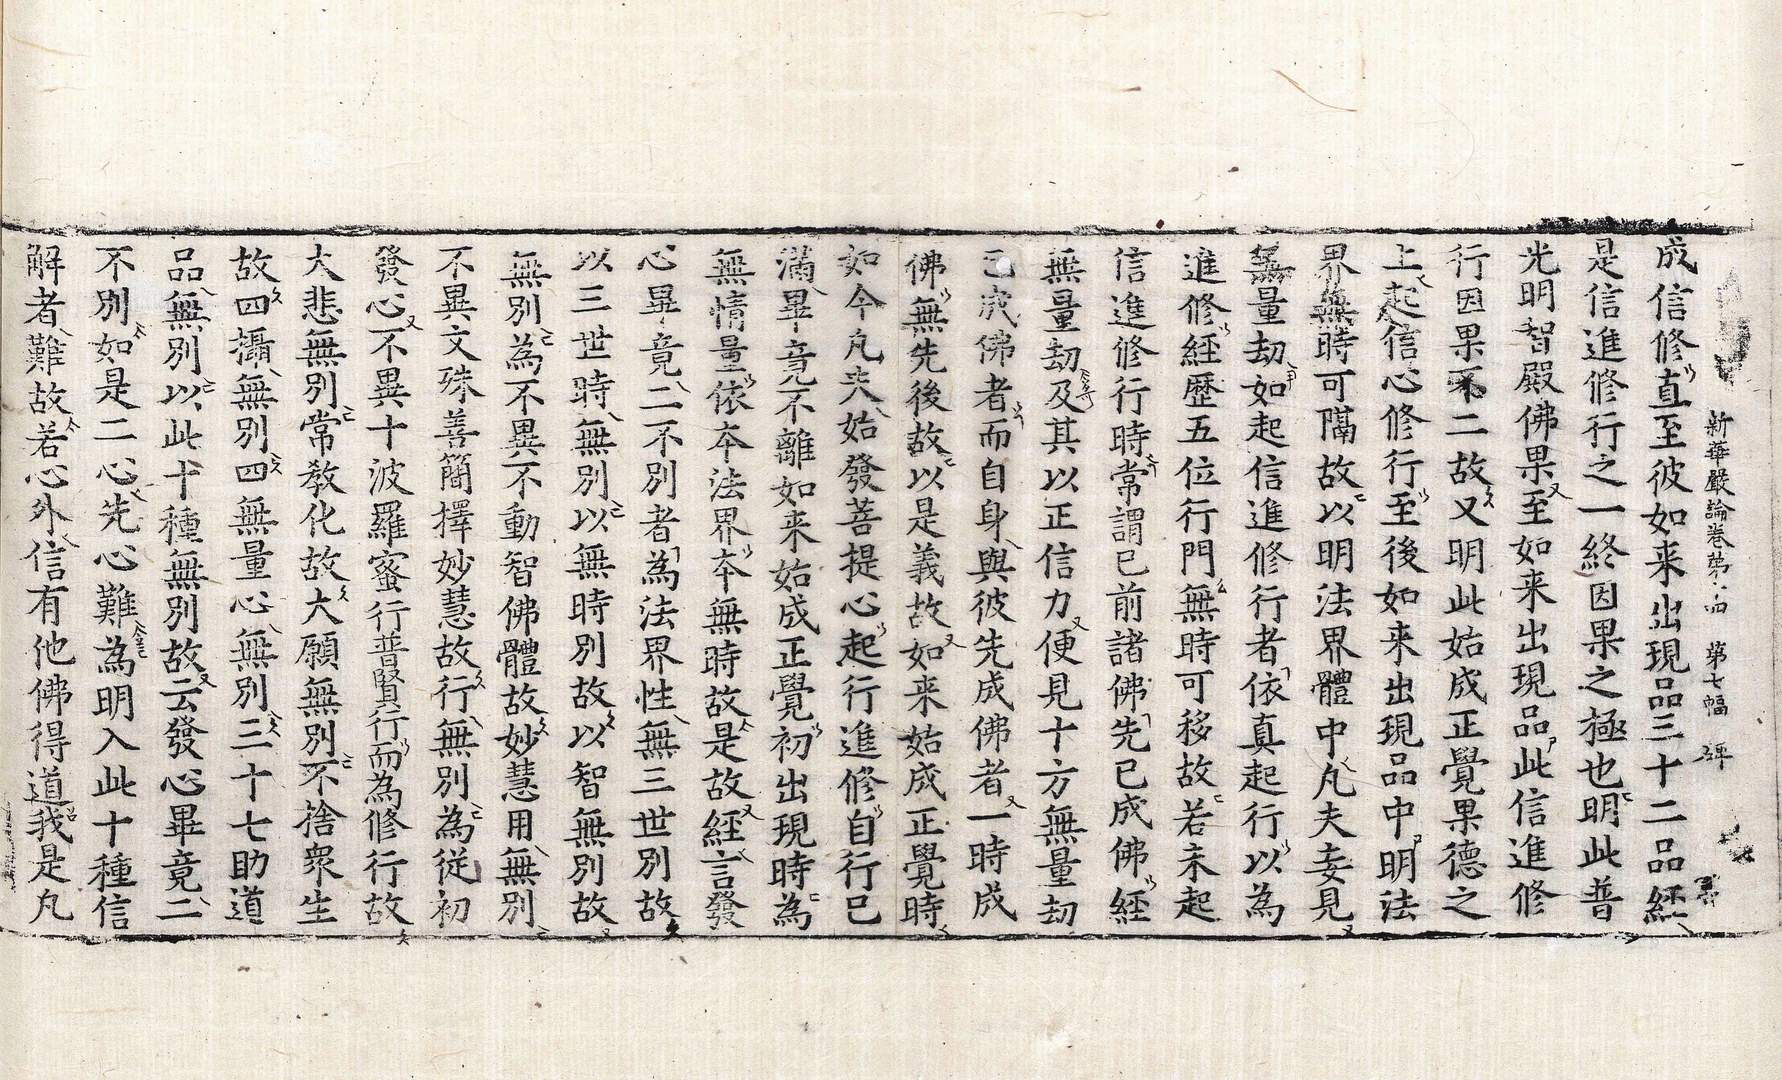 新華嚴論卷第四　第七幅
成信修直至彼如来出現品三十二品經
是信進修行之一終因果之極也明此普
光明智嚴佛果至如来出現品此信進修
行因果不二故又明此始成正覺果德之
上起信心修行至後如来出現品中明法
界無時可隔故以明法界體中凡夫妄見
無量劫如起信進修行者依真起行以為
進修經歷五位行門無時可移故若未起
信進修行時常謂已前諸佛先已成佛經
無量劫及其以正信力便見十方無量劫
已成佛者而自身與彼先成佛者一時成
佛無先後故以是義故如来始成正覺時
如今凡夫始發菩提心起行進修自行已
滿畢竟不離如来始成正覺初出現時為
無情量依本法界本無時故是故經言發
心畢竟二不別者為法界性無三世別故
以三世時無別以無時別故以智無別故
無別為不異不動智佛體故妙慧用無別
不異文殊善簡擇妙慧故行無別為從初
發心不異十波羅蜜行普賢行而為修行故
大悲無別常教化故大願無別不捨衆生
故四攝無別四無量心無別三十七助道
品無別以此十種無別故云發心畢竟二
不別如是二心先心難為明入此十種信
解者難故若心外信有他佛得道我是凡